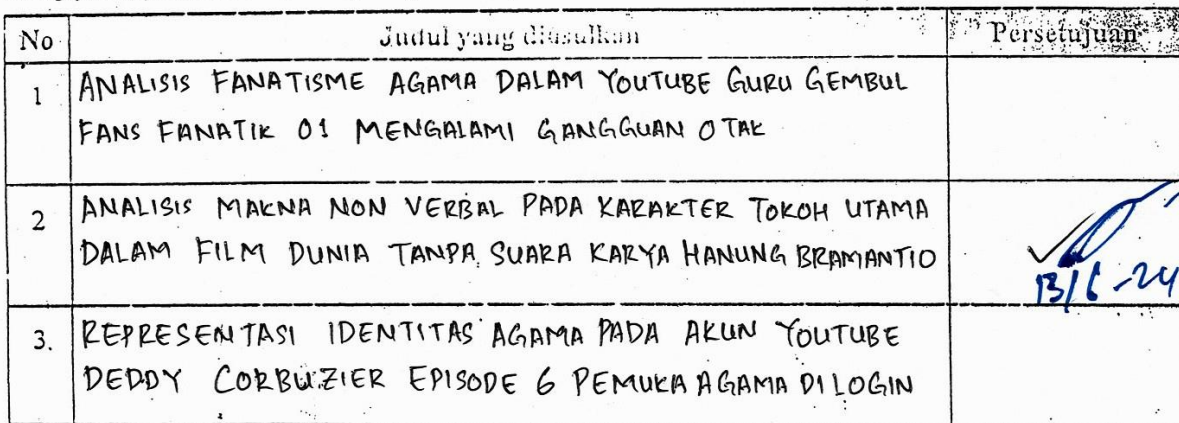 No Judul yang diusulkan Persetujuan
1 ANALISIS FANATISME AGAMA DALAM YOUTUBE GURU GEMBUL
FANS FANATIK 01 MENGALAMI GANGGUAN OTAK
2 ANALISIS MAKNA NON VERBAL PADA KARAKTER TOKOH UTAMA
DALAM FILM DUNIA TANPA SUARA KARYA HANUNG BRAMANTIO
13/6-24
3. REPRESENTASI IDENTITAS AGAMA PADA AKUN YOUTUBE
DEDDY CORBUZIER EPISODE 6 PEMUKA AGAMA DI LOGIN